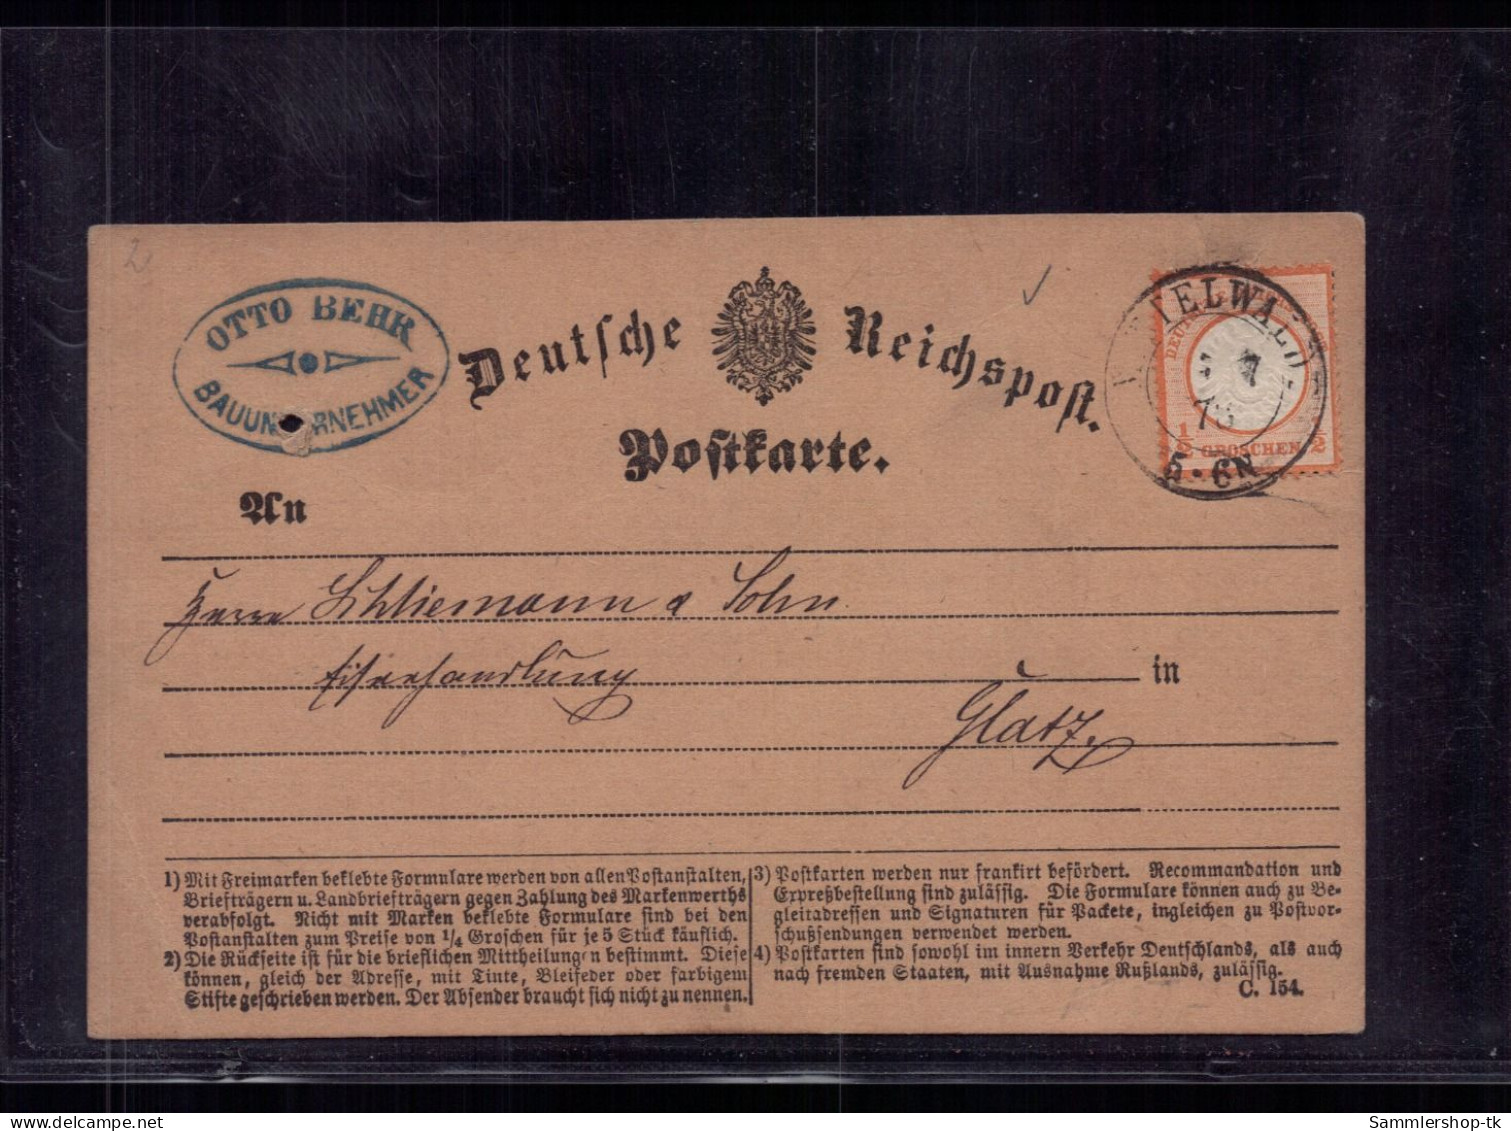 2
OTTO BEHR
BAUUNTERNEHMER
Deutsche Reichspost.
Postkarte.
DEUTSCHE REICHS-POST
1/2 GROSCHEN 1/2
MITTELWALDE
7
73
5-6N
An
Herrn Schliemann & Sohn
Eisenhandlung
in
Glatz.
1) Mit Freimarken beklebte Formulare werden von allen Postanstalten,
Briefträgern u. Landbriefträgern gegen Zahlung des Markenwerths
verabfolgt. Nicht mit Marken beklebte Formulare sind bei den
Postanstalten zum Preise von 1/4 Groschen für je 5 Stück käuflich.
2) Die Rückseite ist für die brieflichen Mittheilungen bestimmt. Diese
können, gleich der Adresse, mit Tinte, Bleifeder oder farbigem
Stifte geschrieben werden. Der Absender braucht sich nicht zu nennen.
3) Postkarten werden nur frankirt befördert. Recommandation und
Expreßbestellung sind zulässig. Die Formulare können auch zu Be-
gleitadressen und Signaturen für Packete, ingleichen zu Postvor-
schußsendungen verwendet werden.
4) Postkarten sind sowohl im innern Verkehr Deutschlands, als auch
nach fremden Staaten, mit Ausnahme Rußlands, zulässig.
C. 154.
Sammlershop-tk